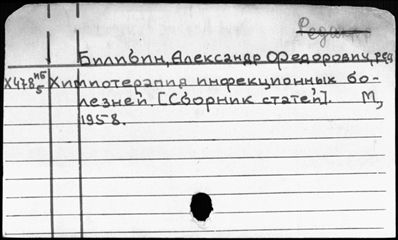 Билибин, Александр Федорович, ред.
Х478 Химиотерапия инфекционных бо-
лезней. [Сборник статей]. М,
1958.